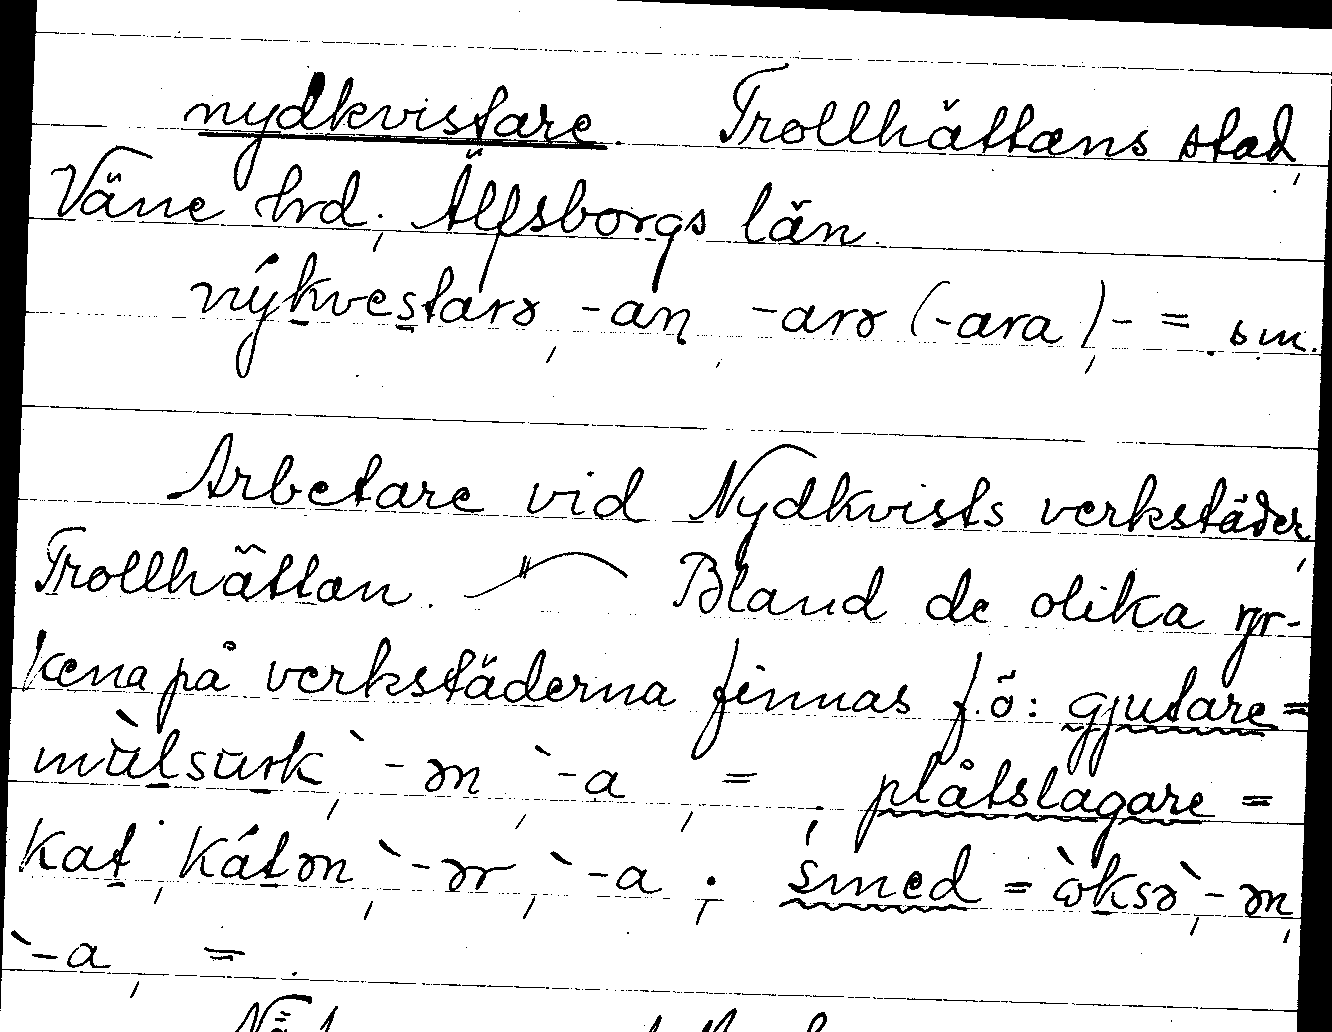 nydkvistare. Trollhättans stad,
Väne hrd, Älfsborgs län.
nýkvestarə, -an, -arə (-ara), - = sm.
Arbetare vid Nydkvists verkstäder,
Trollhättan. Bland de olika yr-
kena på verkstäderna finnas f.ö: gjutare =
mùlsurk, `-ən, `-a, = ; plåtslagare =
kat, kátən, `-ər, `-a ; smed = òksə, `-ən,
`-a, = .